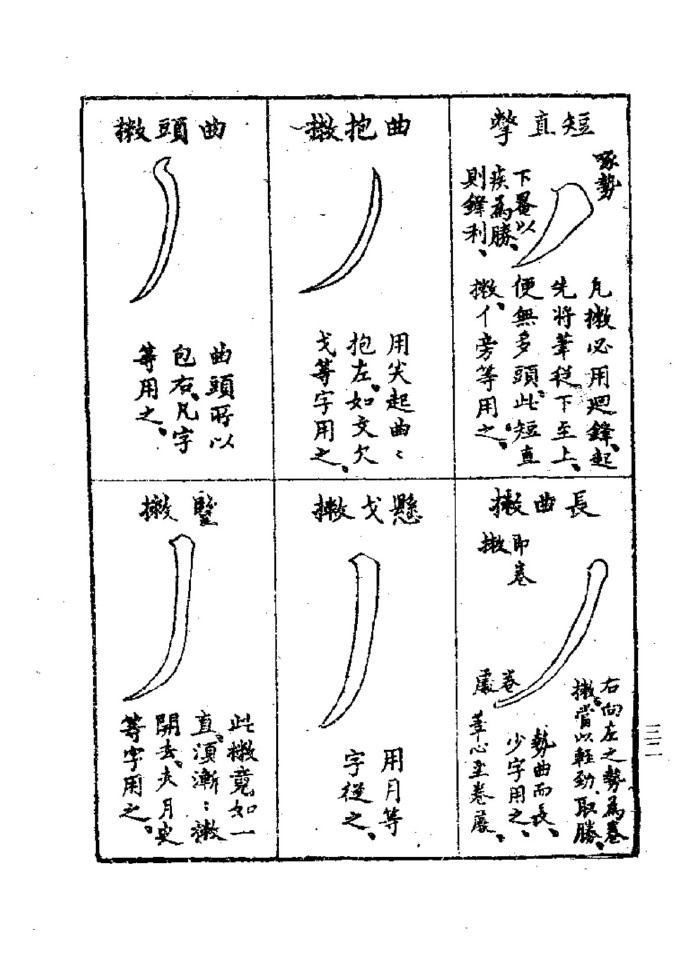 短直撆
啄勢
下罨以
疾為勝、
則鋒利、
凡撇必用廻鋒、起
先將筆從下至上、
便無多頭、此短直
撇、亻旁等用之、
曲抱撇
用尖起曲〻
抱左、如文欠
戈等字用之、
曲頭撇
曲頭所以
包右、凡字
等用之、
長曲撇
即卷
撇
右向左之勢為卷
撇、嘗以輕勁取勝、
勢曲而長、
少字用之、
卷處
筆心至卷處、
懸戈撇
用月等
字從之、
豎撇
此撇竟如一
直、須漸〻撇
開去、夫月史
等字用之。
三二